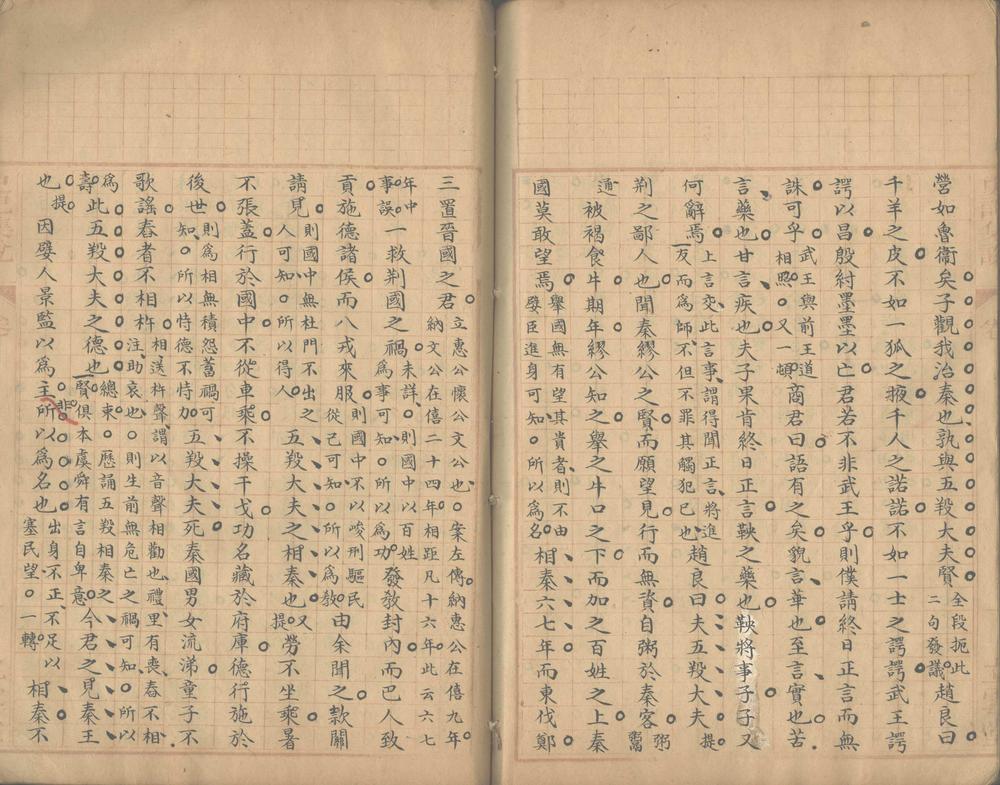 營如魯衛矣子觀我治秦也孰與五羖大夫賢全段扼此二句發議趙良曰
千羊之皮不如一狐之掖千人之諾諾不如一士之諤諤武王諤
諤以昌殷紂墨墨以亡君若不非武王乎則僕請終日正言而無
誅可乎武王與前王道相照又一頓商君曰語有之矣貌言華也至言實也苦
言藥也甘言疾也夫子果肯終日正言鞅之藥也鞅將事子子又
何辭焉上言交此言事謂得聞正言將進一反而為師不但不罪其觸犯已也趙良曰夫五羖大夫提
荊之鄙人也聞秦繆公之賢而願望見行而無資自粥於秦客粥鬻
通被褐食牛期年繆公知之舉之牛口之下而加之百姓之上秦
國莫敢望焉舉國無有望其貴者則不由嬖臣進身可知所以為名相秦六七年而東伐鄭
三置晉國之君立惠公懷公文公也案左傳納惠公在僖九年納文公在僖二十四年相距凡十六年此云六七
年中事誤一救荊國之禍未詳則國中以百姓為事可知所以為功發敎封內而巴人致
貢施德諸侯而八戎來服則國中不以峻刑驅民從己可知所以為敎由余聞之款關
請見則國中無杜門不出之人可知所以得人五羖大夫之相秦也又提勞不坐乘暑
不張蓋行於國中不從車乘不操干戈功名藏於府庫德行施於
後世則為相無積怨蓄禍可知所以恃德不恃力五羖大夫死秦國男女流涕童子不
歌謠舂者不相杵相送杵聲謂以音聲相勸也禮里有喪舂不相注助哀也則生前無危亡之禍可知所以
為壽此五羖大夫之德也總束歷誦五羖相秦之賢俱本虞舜有言自卑意今君之見秦王
也提因嬖人景監以為主非所以為名也出身不正不足以塞民望一轉相秦不